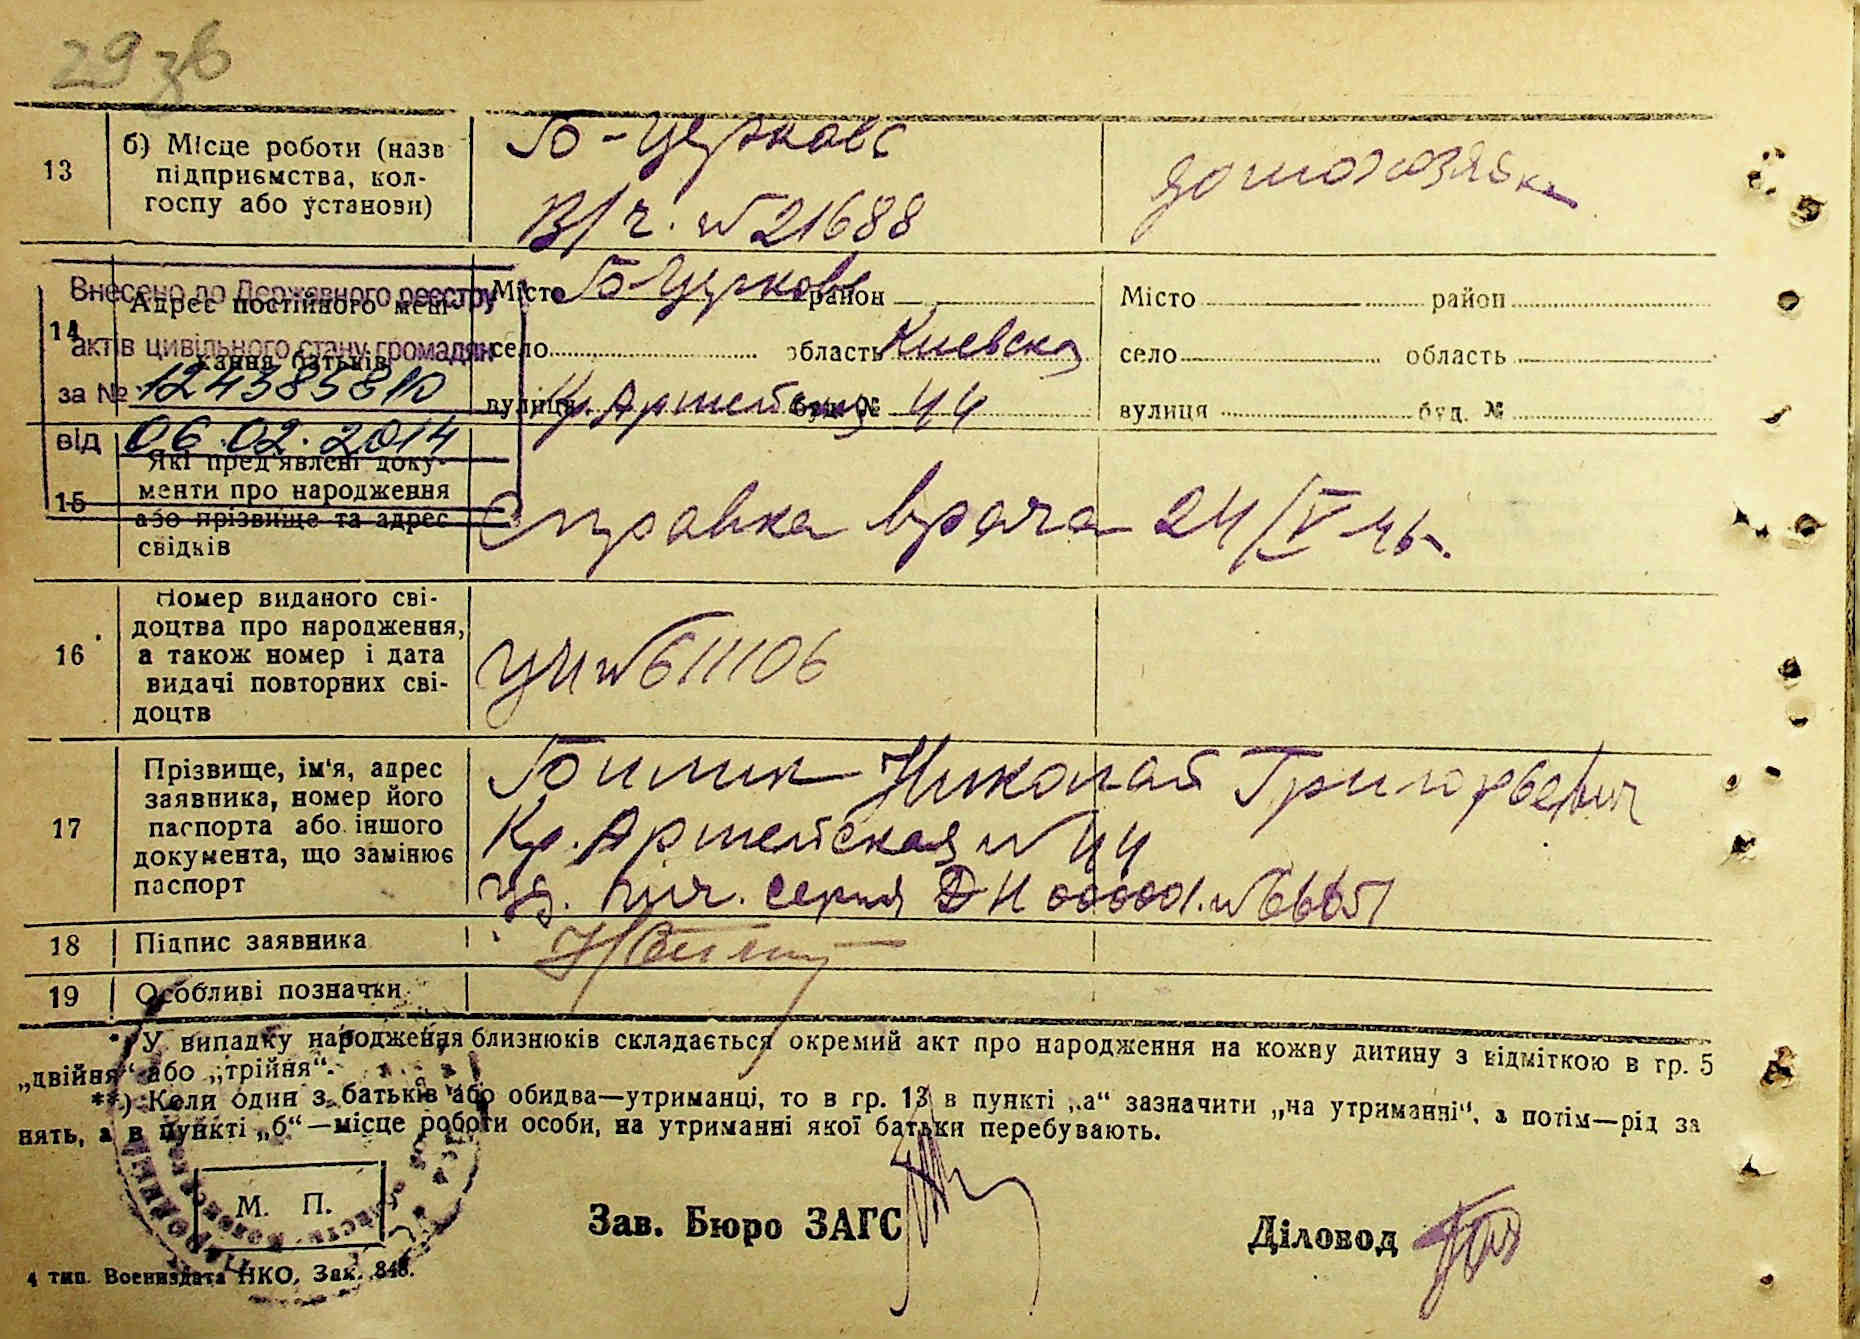 29 зв
13
б) Місце роботи (назв
підприємства, кол-
госпу або установи)
Б-Церковс
В/ч. №21688
домохозяйка
Внесено до Державного реєстру
актів цивільного стану громадян
за № 124385810
від 06.02.2014
14
Адрес постійного меш-
кання батьків
Місто Б-Церковь район
село область Киевская
вулиця Кр. Армейская буд. № 44
Місто район
село область
вулиця буд. №
15
Які пред'явлені доку-
менти про народження
або прізвище та адрес
свідків
Справка врача 24/V-46
16
Номер виданого сві-
доцтва про народження,
а також номер і дата
видачі повторних сві-
доцтв
№611106
17
Прізвище, ім'я, адрес
заявника, номер його
паспорта або іншого
документа, що замінює
паспорт
Николай Григорьевич
Кр. Армейская №44
уд. лич. серия №
18 Підпис заявника
19 Особливі позначки
*) У випадку народження близнюків складається окремий акт про народження на кожну дитину з відміткою в гр. 5
„двійня“ або „трійня“.
**) Коли один з батьків або обидва—утриманці, то в гр. 13 в пункті „а“ зазначити „на утриманні“, а потім—рід за
нять, а в пункті „б“—місце роботи особи, на утриманні якої батьки перебувають.
М. П.
Зав. Бюро ЗАГС
Діловод
4 тип. Воениздата НКО, Зак. 848.